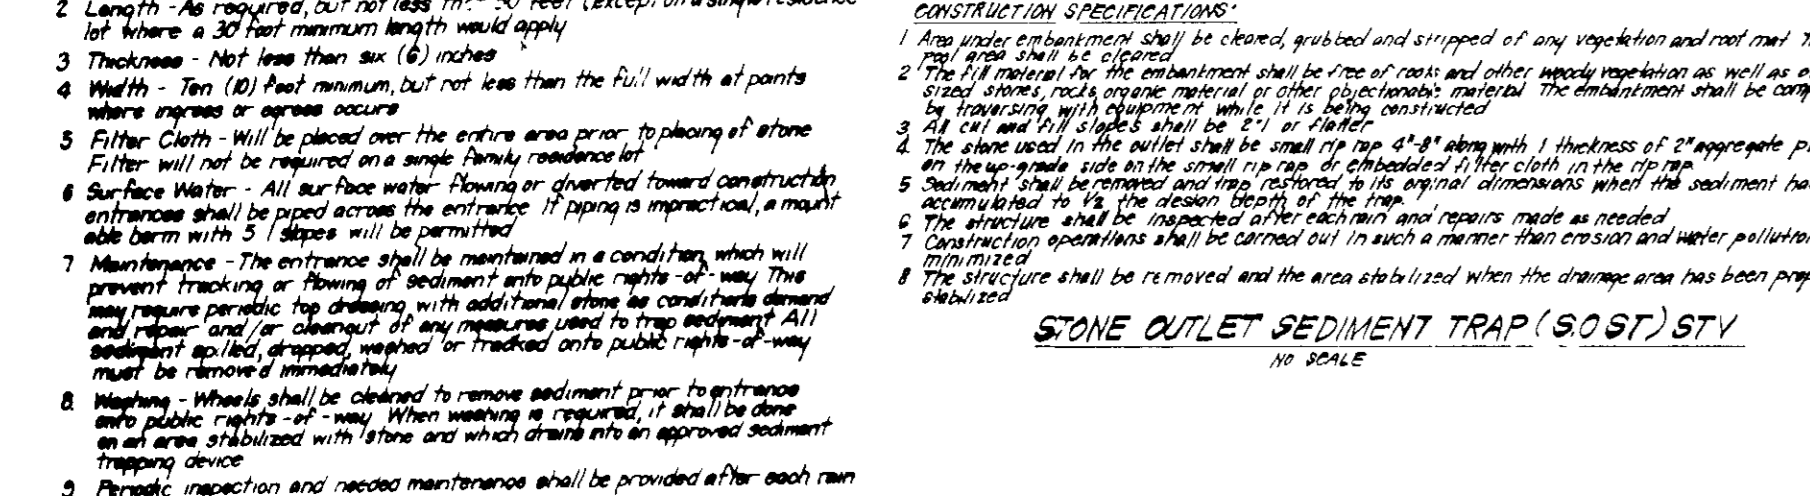 2 Length - As required, but not less 30 feet (except on a single residence
lot where a 30 foot minimum length would apply
3 Thickness - Not less than six (6) inches
4 Width - Ten (10) foot minimum, but not less than the full width at points
where ingress or egress occurs
5 Filter Cloth - Will be placed over the entire area prior to placing of stone
Filter will not be required on a single family residence lot
6 Surface Water - All surface water flowing or diverted toward construction
entrances shall be piped across the entrance If piping is impractical, a mount
able berm with 5 / slopes will be permitted
7 Maintenance - The entrance shall be maintained in a condition which will
prevent tracking or flowing of sediment onto public rights-of-way This
may require periodic top dressing with additional stone as conditions demand
and repair and/or cleanout of any measures used to trap sediment All
sediment spilled, dropped, washed or tracked onto public rights-of-way
must be removed immediately
8. Washing - Wheels shall be cleaned to remove sediment prior to entrance
onto public rights-of-way When washing is required, it shall be done
on an area stabilized with stone and which drains into an approved sediment
trapping device
9 Periodic inspection and needed maintenance shall be provided after each rain
CONSTRUCTION SPECIFICATIONS:
1 Area under embankment shall be cleared, grubbed and stripped of any vegetation and root mat
pool area shall be cleared
2 The fill material for the embankment shall be free of roots and other woody vegetation as well as
sized stones, rocks, organic material or other objectionable material The embankment shall be
by traversing with equipment while it is being constructed
3 All cut and fill slopes shall be 2"1 or flatter
4. The stone used in the outlet shall be small rip rap 4"-8" along with 1 thickness of 2" aggregate
on the up-grade side on the small rip rap or embedded filter cloth in the rip rap
5 Sediment shall be removed and trap restored to its orginal dimensions when the sediment
accumulated to 1/2 the design depth of the trap.
6 The structure shall be inspected after each rain and repairs made as needed
7 Construction operations shall be carried out in such a manner than erosion and water pollution
minimized
8 The structure shall be removed and the area stabilized when the drainage area has been
stabilized
STONE OUTLET SEDIMENT TRAP (S.O.S.T.) STV
NO SCALE